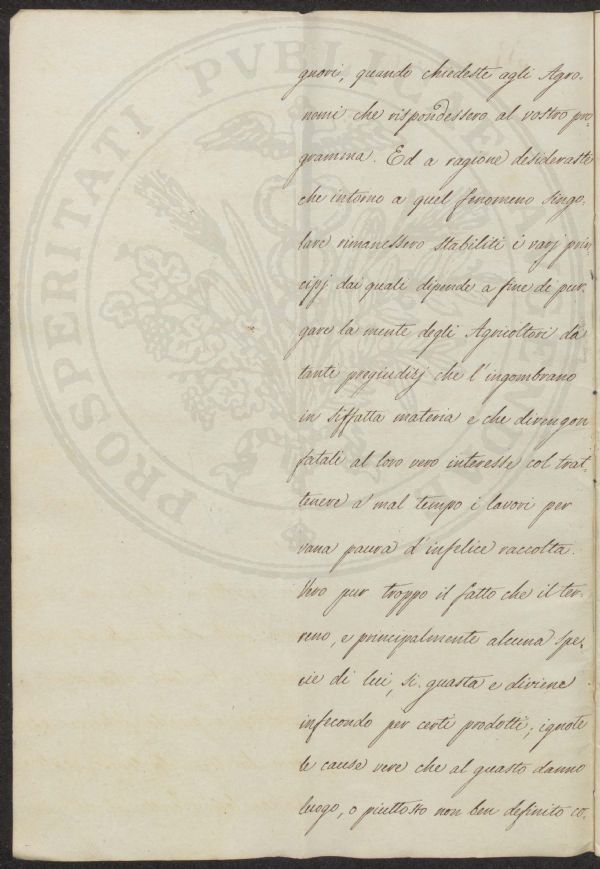 gnori, quando chiedeste agli Agro-
nomi che rispondessero al vostro pro
gramma. Ed a ragione desideraste
che intorno a quel fenomeno singo-
lare rimanessero stabiliti i varj prin
cipj dai quali dipende a fine di pur-
gare la mente degli Agricoltori da
tanti pregiudizj che l'ingombrano
in siffatta materia e che divengon
fatali al loro vero interesse col trat-
tenere a mal tempo i lavori per
vana paura d'infelice raccolta.
Vero pur troppo il fatto che il ter-
reno, e principalmente alcuna spe-
cie di lui, si guasta e diviene
infecondo per certi prodotti; ignote
le cause vere che al guasto danno
luogo, o piuttosto non ben definito co-
PROSPERITATI PVBLICAE